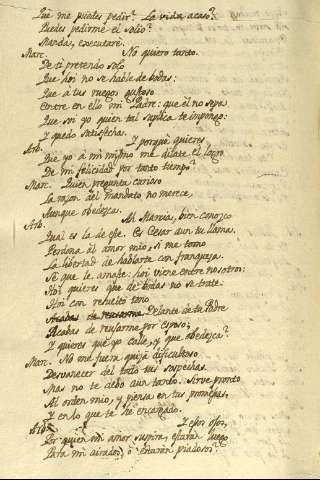 Què me puedes pedir? La vida acaso?
Puedes pedirme el solio?
Manda, executarè.
Marc. No quiero tanto.
De ti pretendo solo
Que hoi no se hable de bodas:
Que à tus ruegos gustoso
Entre en ello mi Padre: que èl no sepa
Que soi yo quien tal suplica te impongo:
Y quedo satisfecha.
Arb. Y porquè quieres
Que yo à mi mismo me dilate el logro
De mi felicidad por tanto tiempo?
Marc. Quien pregunta curioso
La razon del mandato no merece,
Aunque obedezca.
Arb. Ah Marcia, bien conozco
Qual es la de esse. Es Cesar aun tu llama.
Perdona al amor mio, si me tomo
La libertad de hablarte con franqueza.
Sè que le amaste: hoi viene entre nosotros:
Hoi quieres que de bodas no se trate:
Hoi con resuelto tono
Acabas de reusarme Delante de tu Padre
Acabas de reusarme por esposo;
Y quieres que yo calle, y que obedezca?
Marc. No me fuera quizà dificultoso
Desvanecer del todo tus sospechas
Mas no te debo aun tanto. Sirve pronto
Al orden mio, y piensa en tus promesas,
Y en lo que te he encargado.
Arb. Y esos ojos,
Por quien mi amor suspira, estaràn luego
Para mi airados, ò estaràn piadosos?